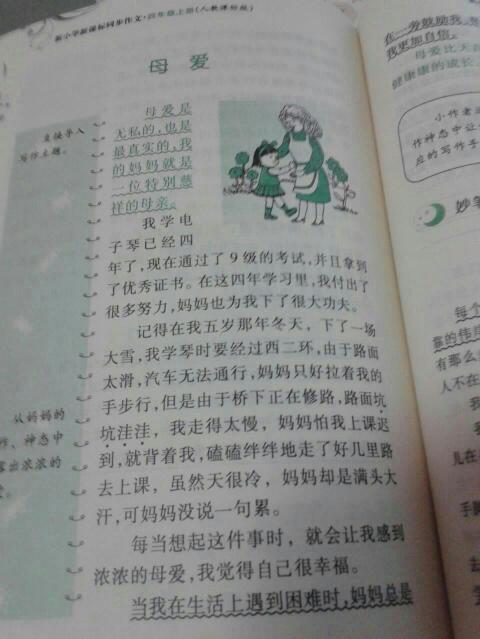 新小学新课标同步作文·四年级上册(人教课标版)
母 爱
直接导入
写作主题。
母爱是
无私的,也是
最真实的,我
的妈妈就是
一位特别慈
祥的母亲。
我学电
子琴已经四
年了,现在通过了9级的考试,并且拿到
了优秀证书。在这四年学习里,我付出了
很多努力,妈妈也为我下了很大功夫。
记得在我五岁那年冬天,下了一场
大雪,我学琴时要经过西二环,由于路面
太滑,汽车无法通行,妈妈只好拉着我的
手步行,但是由于桥下正在修路,路面坑
坑洼洼,我走得太慢,妈妈怕我上课迟
到,就背着我,磕磕绊绊地走了好几里路
去上课,虽然天很冷,妈妈却是满头大
汗,可妈妈没说一句累。
每当想起这件事时,就会让我感到
浓浓的母爱,我觉得自己很幸福。
当我在生活上遇到困难时,妈妈总是
从妈妈的
作、神态中
露出浓浓的
在一旁鼓励我,
我更加自信。
母爱比天
健康的成长
小作者
作神态中让
应的写作手
妙笔
每个
靠的伟岸
有那么
人不在
我
我
儿在
手脚
去